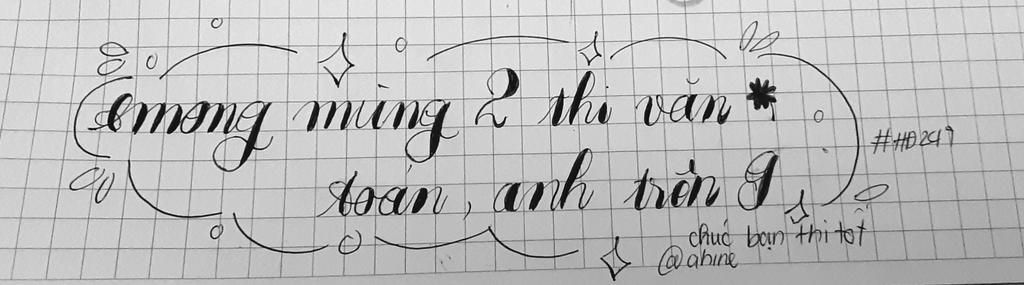 mong mùng 2 thi văn *
toán, anh trên 9
##HD247
chúc bạn thi tốt
@ahine